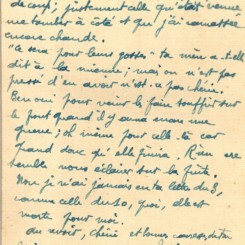 de coup; justement elle qu'était venue
me tomber à côté et que j'ai ramassée
encore chaude.
"ce sera pour leurs gosses" tu m'en a-t-elle
dit à la mienne; mais on n'est pas
pressé d'en avoir n'est-ce pas chérie.
Ben oui pour voir le faire souffrir sur
le front quand il y aura encore une
guerre; oh même pour celle-ci car
quand donc qu'elle finira. Rien ne
semble nous éclairer sur la suite.
Non je n'ai jamais eu ta lettre du 3,
comme celle du 20, quoi, elle est
morte pour moi.
Au revoir, chérie et bonnes